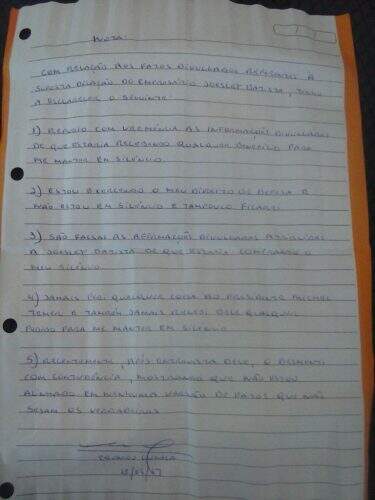 NOTA:
COM RELAÇÃO AOS FATOS DIVULGADOS REFERENTES À
SUPOSTA DELAÇÃO DO EMPRESÁRIO JOESLEY BATISTA, TENHO
A ESCLARECER O SEGUINTE:
1) REPUDIO COM VEEMÊNCIA AS INFORMAÇÕES DIVULGADAS
DE QUE ESTARIA RECEBENDO QUALQUER BENEFÍCIO PARA
ME MANTER EM SILÊNCIO
2) ESTOU EXERCENDO O MEU DIREITO DE DEFESA E
NÃO ESTOU EM SILÊNCIO E TAMPOUCO FICAREI
3) SÃO FALSAS AS AFIRMAÇÕES DIVULGADAS ATRIBUÍDAS
A JOESLEY BATISTA DE QUE ESTARIA COMPRANDO O
MEU SILÊNCIO
4) JAMAIS PEDI QUALQUER COISA AO PRESIDENTE MICHEL
TEMER E TAMBÉM JAMAIS RECEBI DELE QUALQUER
PEDIDO PARA ME MANTER EM SILÊNCIO
5) RECENTEMENTE, APÓS ENTREVISTA DELE, O DESMENTI
COM CONTUNDÊNCIA, MOSTRANDO QUE NÃO ESTOU
ALINHADO EM NENHUMA VERSÃO DE FATOS QUE NÃO
SEJAM OS VERDADEIROS
EDUARDO CUNHA